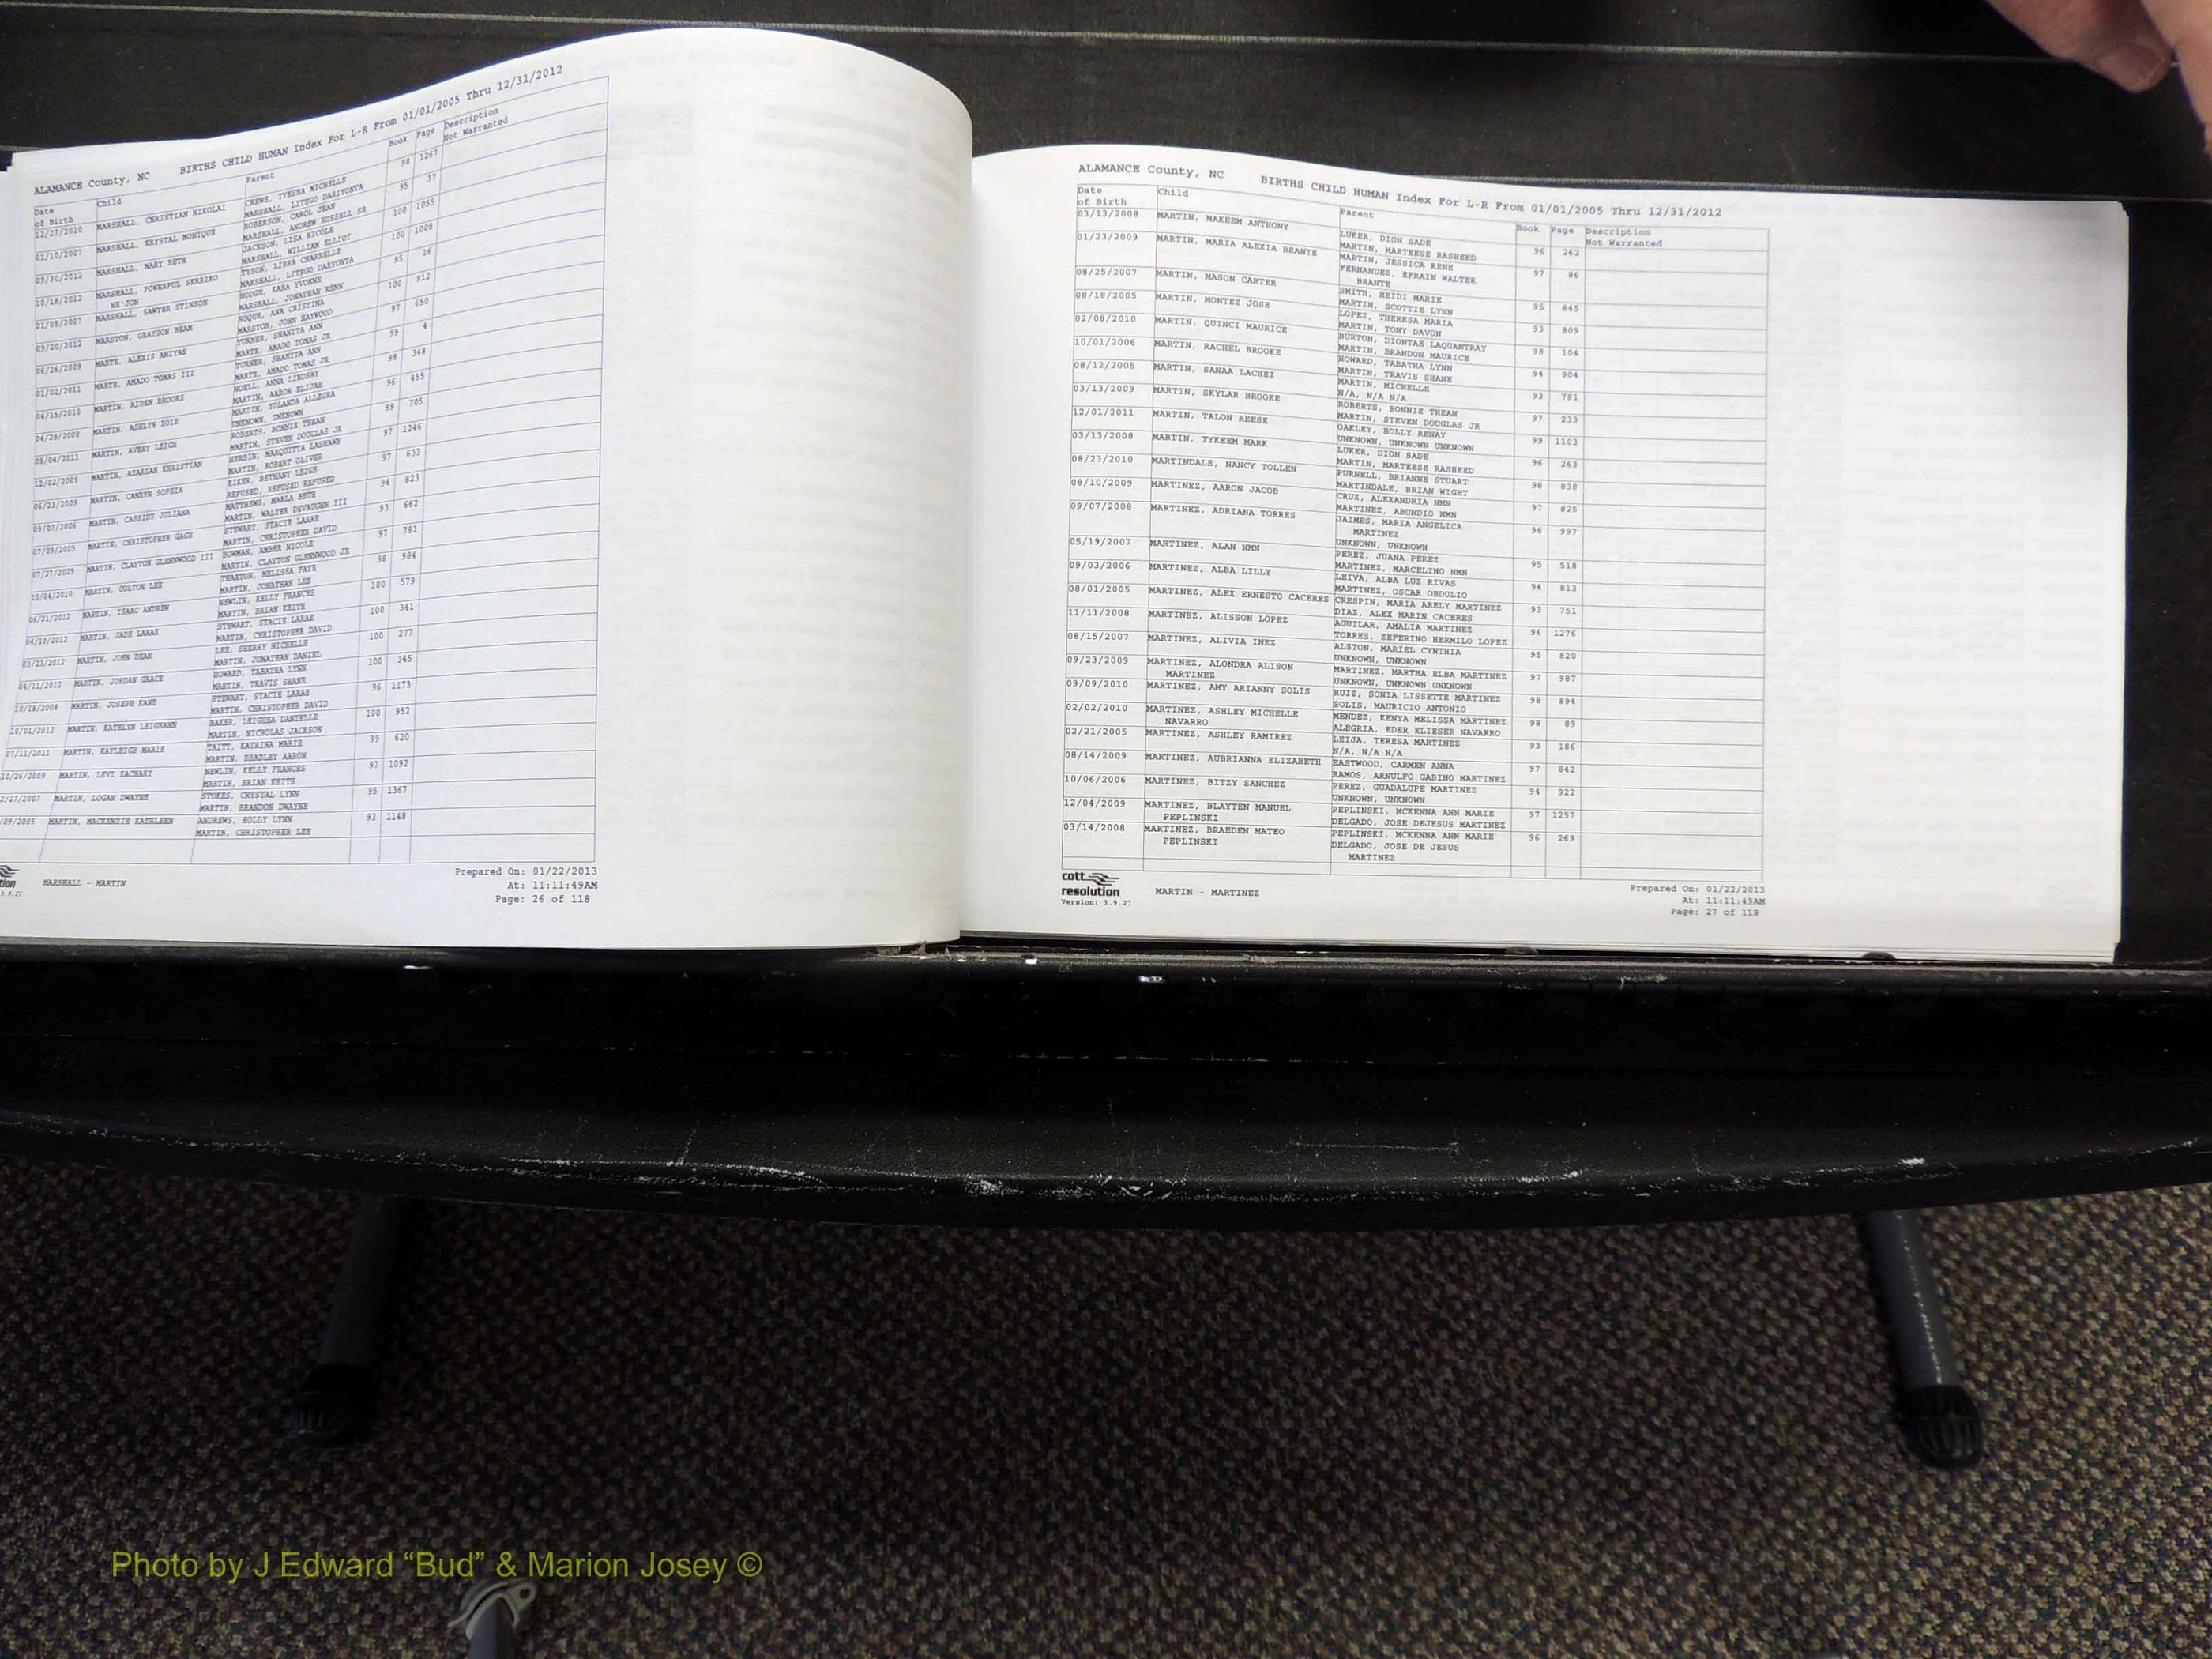 ALAMANCE County, NC BIRTHS CHILD HUMAN Index For L-R From 01/01/2005 Thru 12/31/2012
Date of Birth Child Parent Book Page Description Not Warranted
12/27/2010 MARSHALL, CHRISTIAN NIKOLAI CREWS, TYESHA MICHELLE 98 1267
MARSHALL, LITEGO DARIYONTA
01/10/2007 MARSHALL, KRYSTAL MONIQUE ROBERSON, CAROL JEAN 95 37
MARSHALL, ANDREW RUSSELL SR
09/30/2012 MARSHALL, MARY BETH JACKSON, LISA NICOLE 100 1055
MARSHALL, WILLIAN ELLIOT
10/18/2012 MARSHALL, POWERFUL SERRIKO TYSON, LIBRA CHARRELLE 100 1008
KE'JON MARSHALL, LITEGO DARYONTA
01/05/2007 MARSHALL, SAWYER STINSON HODGE, KARA YVONNE 95 16
MARSHALL, JONATHAN RENN
09/20/2012 MARSTON, GRAYSON BEAM ROQUE, ANA CRISTINA 100 912
MARSTON, JOHN HAYWOOD
06/26/2009 MARTE, ALEXIS ANIYAH TURNER, SHANITA ANN 97 650
MARTE, AMADO TOMAS JR
01/02/2011 MARTE, AMADO TOMAS III TURNER, SHANITA ANN 99 4
MARTE, AMADO TOMAS JR
04/15/2010 MARTIN, AIDEN BROOKS NOELL, ANNA LINDSAY 98 348
MARTIN, AARON ELIJAH
04/29/2008 MARTIN, ASHLYN ZOIE MARTIN, YOLANDA ALLEGRA 96 455
UNKNOWN, UNKNOWN
08/04/2011 MARTIN, AVERY LEIGH ROBERTS, BONNIE THEAN 99 705
MARTIN, STEVEN DOUGLAS JR
12/02/2009 MARTIN, AZARIAH KHRISTIAN HERBIN, MARQUITTA LASHAWN 97 1246
MARTIN, ROBERT OLIVER
06/23/2009 MARTIN, CAMRYN SOPHIA KIKER, BETHANY LEIGH 97 633
REFUSED, REFUSED REFUSED
09/07/2006 MARTIN, CASSIDY JULIANA MATTHEWS, MARLA BETH 94 823
MARTIN, WALTER DEVAUGHN III
07/09/2005 MARTIN, CHRISTOPHER GAGE STEWART, STACIE LARAE 93 662
MARTIN, CHRISTOPHER DAVID
07/27/2009 MARTIN, CLAYTON GLENNWOOD III BOWMAN, AMBER NICOLE 97 781
MARTIN, CLAYTON GLENNWOOD JR
10/04/2010 MARTIN, COLTON LEE THAXTON, MELISSA FAYE 98 984
MARTIN, JONATHAN LEE
06/21/2012 MARTIN, ISAAC ANDREW NEWLIN, KELLY FRANCES 100 579
MARTIN, BRIAN KEITH
04/10/2012 MARTIN, JADE LARAE STEWART, STACIE LARAE 100 341
MARTIN, CHRISTOPHER DAVID
03/23/2012 MARTIN, JOHN DEAN LEE, SHERRY NICHELLE 100 277
MARTIN, JONATHAN DANIEL
04/11/2012 MARTIN, JORDAN GRACE HOWARD, TABATHA LYNN 100 345
MARTIN, TRAVIS SHANE
10/18/2008 MARTIN, JOSEPH KANE STEWART, STACIE LARAE 96 1173
MARTIN, CHRISTOPHER DAVID
10/01/2012 MARTIN, KATELYN LEIGHANN BAKER, LEIGHEA DANIELLE 100 952
MARTIN, NICHOLAS JACKSON
07/11/2011 MARTIN, KAYLEIGH MARIE TAITT, KATRINA MARIE 99 620
MARTIN, BRADLEY AARON
10/26/2009 MARTIN, LEVI ZACHARY NEWLIN, KELLY FRANCES 97 1092
MARTIN, BRIAN KEITH
2/27/2007 MARTIN, LOGAN DWAYNE STOKES, CRYSTAL LYNN 95 1367
MARTIN, BRANDON DWAYNE
/09/2005 MARTIN, MACKENZIE KATHLEEN ANDREWS, HOLLY LYNN 93 1148
MARTIN, CHRISTOPHER LEE
MARSHALL - MARTIN
Prepared On: 01/22/2013
At: 11:11:49AM
Page: 26 of 118
ALAMANCE County, NC BIRTHS CHILD HUMAN Index For L-R From 01/01/2005 Thru 12/31/2012
Date of Birth Child Parent Book Page Description Not Warranted
03/13/2008 MARTIN, MAKEEM ANTHONY LUKER, DION SADE 96 262
MARTIN, MARTEESE RASHEED
01/23/2009 MARTIN, MARIA ALEXIA BRANTE MARTIN, JESSICA RENE 97 86
FERNANDEZ, EFRAIN WALTER
BRANTE
08/25/2007 MARTIN, MASON CARTER SMITH, HEIDI MARIE 95 845
MARTIN, SCOTTIE LYNN
08/18/2005 MARTIN, MONTEZ JOSE LOPEZ, THERESA MARIA 93 809
MARTIN, TONY DAVON
02/08/2010 MARTIN, QUINCI MAURICE BURTON, DIONTAE LAQUANTRAY 98 104
MARTIN, BRANDON MAURICE
10/01/2006 MARTIN, RACHEL BROOKE HOWARD, TABATHA LYNN 94 904
MARTIN, TRAVIS SHANE
08/12/2005 MARTIN, SANAA LACHEI MARTIN, MICHELLE 93 781
N/A, N/A N/A
03/13/2009 MARTIN, SKYLAR BROOKE ROBERTS, BONNIE THEAN 97 233
MARTIN, STEVEN DOUGLAS JR
12/01/2011 MARTIN, TALON REESE OAKLEY, HOLLY RENAY 99 1103
UNKNOWN, UNKNOWN UNKNOWN
03/13/2008 MARTIN, TYKEEM MARK LUKER, DION SADE 96 263
MARTIN, MARTEESE RASHEED
08/23/2010 MARTINDALE, NANCY TOLLEN PURNELL, BRIANNE STUART 98 838
MARTINDALE, BRIAN WIGHT
08/10/2009 MARTINEZ, AARON JACOB CRUZ, ALEXANDRIA NMN 97 825
MARTINEZ, ABUNDIO NMN
09/07/2008 MARTINEZ, ADRIANA TORRES JAIMES, MARIA ANGELICA 96 997
MARTINEZ
UNKNOWN, UNKNOWN
05/19/2007 MARTINEZ, ALAN NMN PEREZ, JUANA PEREZ 95 518
MARTINEZ, MARCELINO NMN
09/03/2006 MARTINEZ, ALBA LILLY LEIVA, ALBA LUZ RIVAS 94 813
MARTINEZ, OSCAR OBDULIO
08/01/2005 MARTINEZ, ALEX ERNESTO CACERES CRESPIN, MARIA ARELY MARTINEZ 93 751
DIAZ, ALEX MARIN CACERES
11/11/2008 MARTINEZ, ALISSON LOPEZ AGUILAR, AMALIA MARTINEZ 96 1276
TORRES, ZEFERINO HERMILO LOPEZ
08/15/2007 MARTINEZ, ALIVIA INEZ ALSTON, MARIEL CYNTHIA 95 820
UNKNOWN, UNKNOWN
09/23/2009 MARTINEZ, ALONDRA ALISON MARTINEZ, MARTHA ELBA MARTINEZ 97 987
MARTINEZ UNKNOWN, UNKNOWN UNKNOWN
09/09/2010 MARTINEZ, AMY ARIANNY SOLIS RUIZ, SONIA LISSETTE MARTINEZ 98 894
SOLIS, MAURICIO ANTONIO
02/02/2010 MARTINEZ, ASHLEY MICHELLE MENDEZ, KENYA MELISSA MARTINEZ 98 89
NAVARRO ALEGRIA, EDER ELIESER NAVARRO
02/21/2005 MARTINEZ, ASHLEY RAMIREZ LEIJA, TERESA MARTINEZ 93 186
N/A, N/A N/A
08/14/2009 MARTINEZ, AUBRIANNA ELIZABETH EASTWOOD, CARMEN ANNA 97 842
RAMOS, ARNULFO GABINO MARTINEZ
10/06/2006 MARTINEZ, BITZY SANCHEZ PEREZ, GUADALUPE MARTINEZ 94 922
UNKNOWN, UNKNOWN
12/04/2009 MARTINEZ, BLAYTEN MANUEL PEPLINSKI, MCKENNA ANN MARIE 97 1257
PEPLINSKI DELGADO, JOSE DEJESUS MARTINEZ
03/14/2008 MARTINEZ, BRAEDEN MATEO PEPLINSKI, MCKENNA ANN MARIE 96 269
PEPLINSKI DELGADO, JOSE DE JESUS
MARTINEZ
cott
resolution
Version: 3.9.27
MARTIN - MARTINEZ
Prepared On: 01/22/2013
At: 11:11:49AM
Page: 27 of 118
Photo by J Edward “Bud” & Marion Josey ©